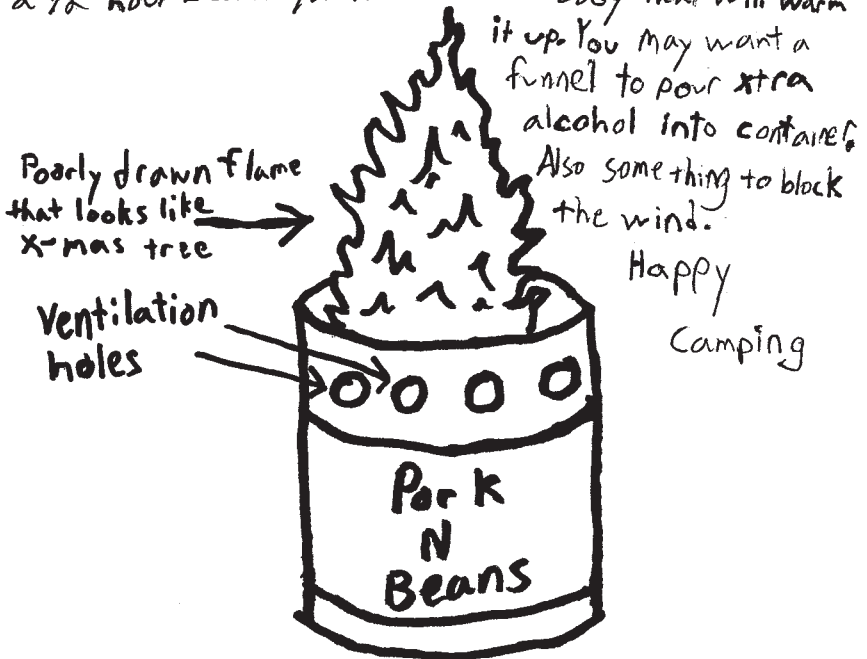 it up. You may want a
funnel to pour xtra
alcohol into container.
Also something to block
the wind.
Happy
Camping
Poorly drawn flame
that looks like
x-mas tree
Ventilation
holes
Pork
N
Beans